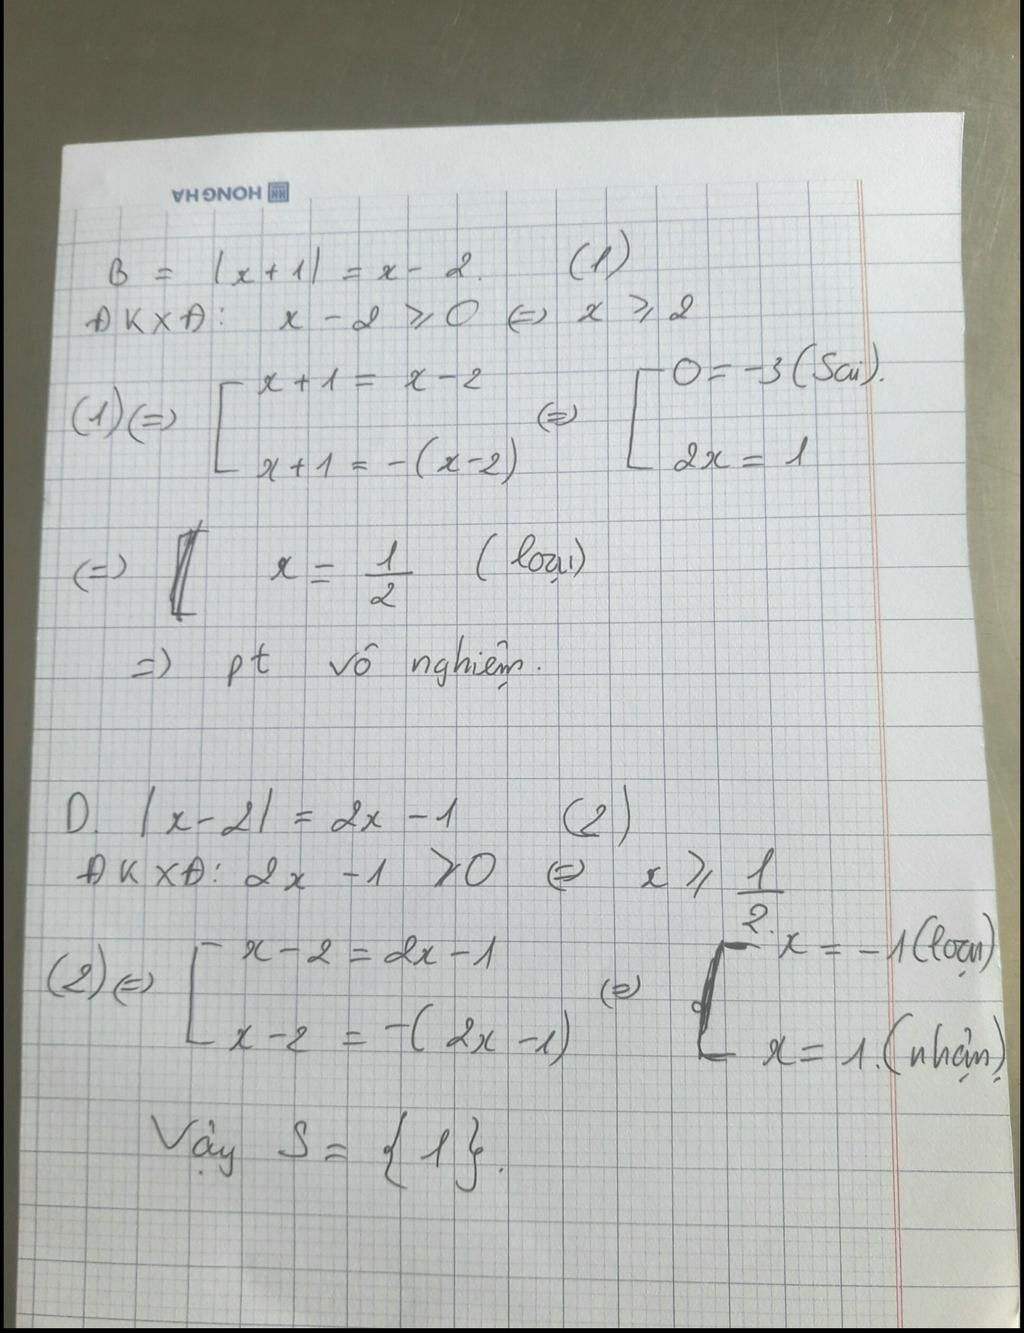 HONG HA
B = |x+1| = x - 2. (1)
ĐKXĐ: x - 2 ⩾ 0 (=) x ⩾ 2
(1) (=) [ x + 1 = x - 2 (=) [ 0 = -3 (Sai).
x + 1 = -(x-2) 2x = 1
(=) x = 1/2 (loại)
=) pt vô nghiệm.
D. |x-2| = 2x - 1 (2)
ĐKXĐ: 2x - 1 ⩾ 0 (=) x ⩾ 1/2.
(2) (=) [ x - 2 = 2x - 1 (=) [ x = -1 (loại)
x - 2 = -(2x - 1) x = 1. (nhận)
Vậy S = {1}.